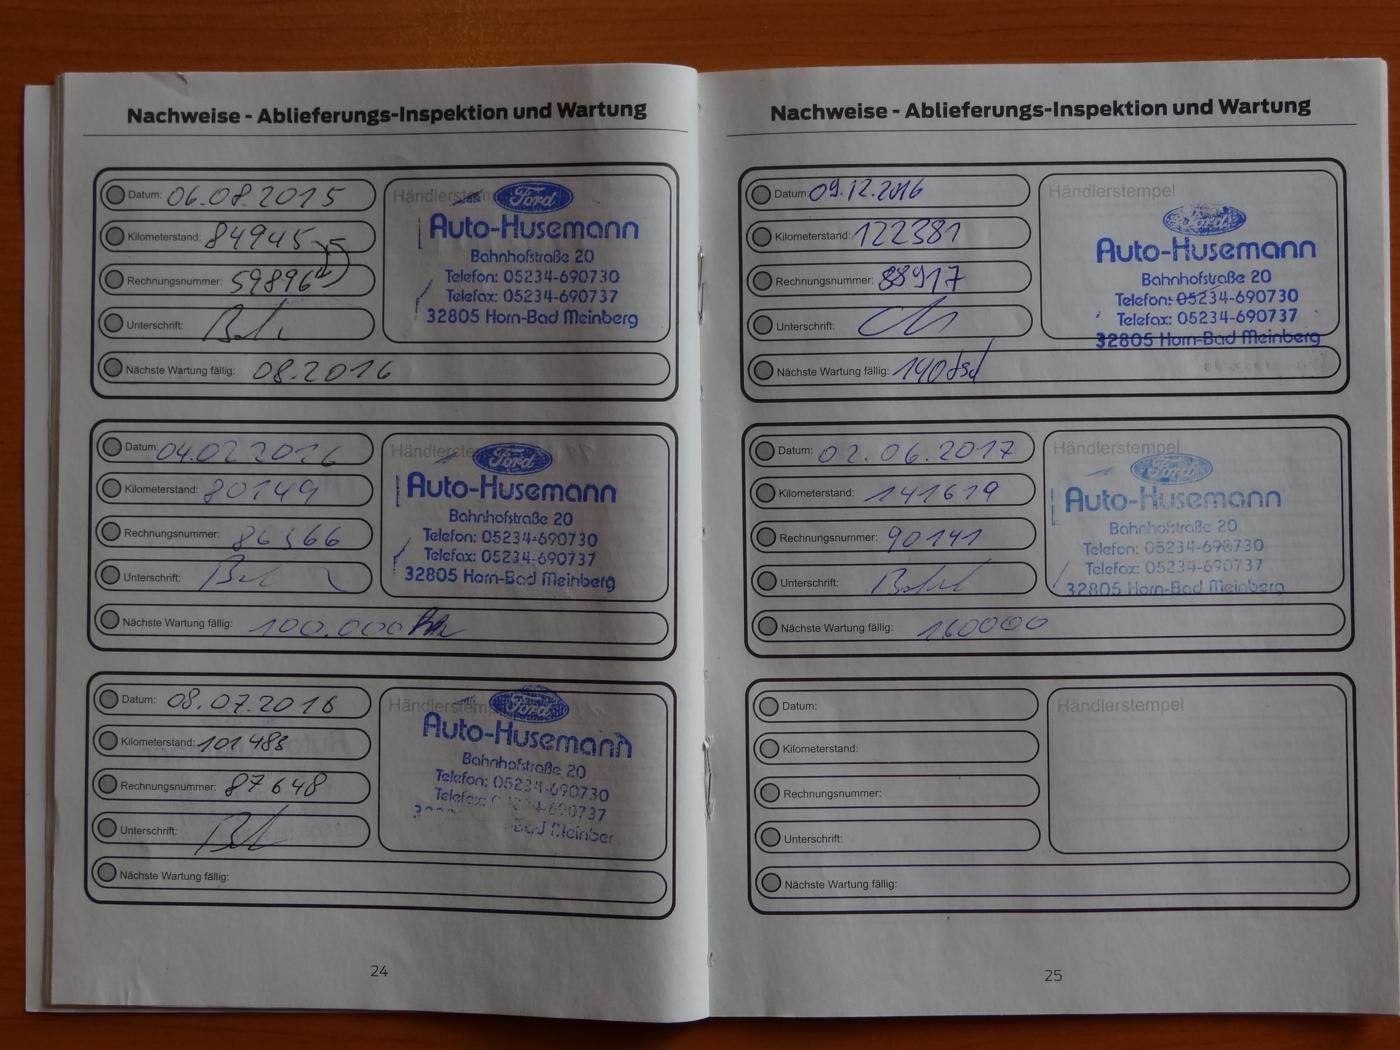 Nachweise - Ablieferungs-Inspektion und Wartung
Datum: 06.08.2015
Kilometerstand: 84945
Rechnungsnummer: 59896
Unterschrift:
Nächste Wartung fällig: 08.2016
Händlerstem
Ford
Auto-Husemann
Bahnhofstraße 20
Telefon: 05234-690730
Telefax: 05234-690737
32805 Horn-Bad Meinberg
Datum: 04.02.2016
Kilometerstand: 80149
Rechnungsnummer: 86366
Unterschrift:
Nächste Wartung fällig: 100.000 km
Händlerste
Ford
Auto-Husemann
Bahnhofstraße 20
Telefon: 05234-690730
Telefax: 05234-690737
32805 Horn-Bad Meinberg
Datum: 08.07.2016
Kilometerstand: 101483
Rechnungsnummer: 87648
Unterschrift:
Nächste Wartung fällig:
Händlerstem
Ford
Auto-Husemann
Bahnhofstraße 20
Telefon: 05234-690730
Telefax: 690737
Bad Meinber
24
Nachweise - Ablieferungs-Inspektion und Wartung
Datum: 09.12.2016
Kilometerstand: 122381
Rechnungsnummer: 88917
Unterschrift:
Nächste Wartung fällig: 140dsd
Händlerstempel
Ford
Auto-Husemann
Bahnhofstraße 20
Telefon: 05234-690730
Telefax: 05234-690737
32805 Horn-Bad Meinberg
Datum: 02.06.2017
Kilometerstand: 141619
Rechnungsnummer: 90141
Unterschrift:
Nächste Wartung fällig: 160000
Händlerstempel
Ford
Auto-Husemann
Bahnhofstraße 20
Telefon: 05234-690730
Telefax: 05234-690737
32805 Horn-Bad Meinberg
Datum:
Kilometerstand:
Rechnungsnummer:
Unterschrift:
Nächste Wartung fällig:
Händlerstempel
25